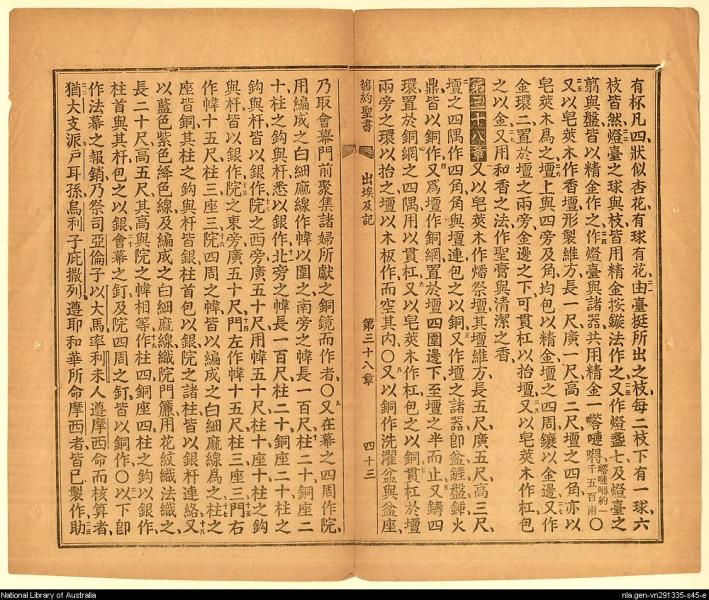 有杯凡四狀似杏花有球有花由臺挺所出之枝每二枝下有一球六
枝皆然燈臺之球與枝皆用精金按鏇法作之又作燈盞七及燈臺之
翦與盤皆以精金作之作燈臺與諸器共用精金一嗒嗹得嗒嗹得約一千五百兩○
又以皂莢木作香壇形製維方長一尺廣一尺高二尺壇之四角亦以
皂莢木爲之壇上與四旁及角均包以精金壇之四周鑲以金邊又作
金環二置於壇之兩旁金邊之下可貫杠以抬壇又以皂莢木作杠包
之以金又用和香之法作聖膏與清潔之香
第三十八章又以皂莢木作燔祭壇其壇維方長五尺廣五尺高三尺
壇之四隅作四角角與壇連包之以銅又作壇之諸器卽盆鏟盤鍤火
鼎皆以銅作又爲壇作銅網置於壇四圍邊下至壇之半而止又鑄四
環置於銅網之四隅用以貫杠又以皂莢木作杠包之以銅貫杠於壇
兩旁之環以抬之壇以木板作而空其內○又以銅作洗濯盆與盆座
舊約聖書 出埃及記 第三十八章 四十三
乃取會幕門前聚集諸婦所獻之銅鏡而作者○又在幕之四周作院
用編成之白細麻線作幃以圍之南旁之幃長一百尺柱二十銅座二
十柱之鈎與杆悉以銀作北旁之幃長一百尺柱二十銅座二十柱之
鈎與杆皆以銀作院之西旁廣五十尺用幃五十尺柱十座十柱之鈎
與杆皆以銀作院之東旁廣五十尺門左作幃十五尺柱三座三門右
作幃十五尺柱三座三院四周之幃皆以編成之白細麻線爲之柱之
座皆銅其柱之鈎與杆皆銀柱首包以銀院之諸柱皆以銀杆連絡又
以藍色紫色絳色線及編成之白細麻線織院門簾用花紋織法織之
長二十尺高五尺其高與院之幃相等作柱四銅座四柱之鈎以銀作
柱首與其杆包之以銀會幕之釘及院四周之釘皆以銅作○以下卽
作法幕之報銷乃祭司亞倫子以大馬率利未人遵摩西命而核算者
猶大支派戸耳孫烏利子庇撒列遵耶和華所命摩西者皆已製作助
National Library of Australia
nla.gen-vn291335-s45-e